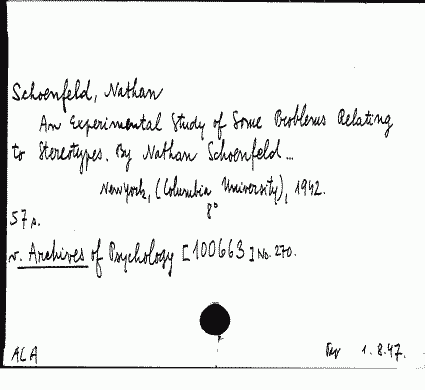 Schoenfeld, Nathan
An Experimental Study of Some Problems Relating
to Stereotypes. By Nathan Schoenfeld...
New York, (Columbia University), 1942.
8°
57 p.
v. Archives of Psychology [100663] No. 270.
ACA
1.8.47.